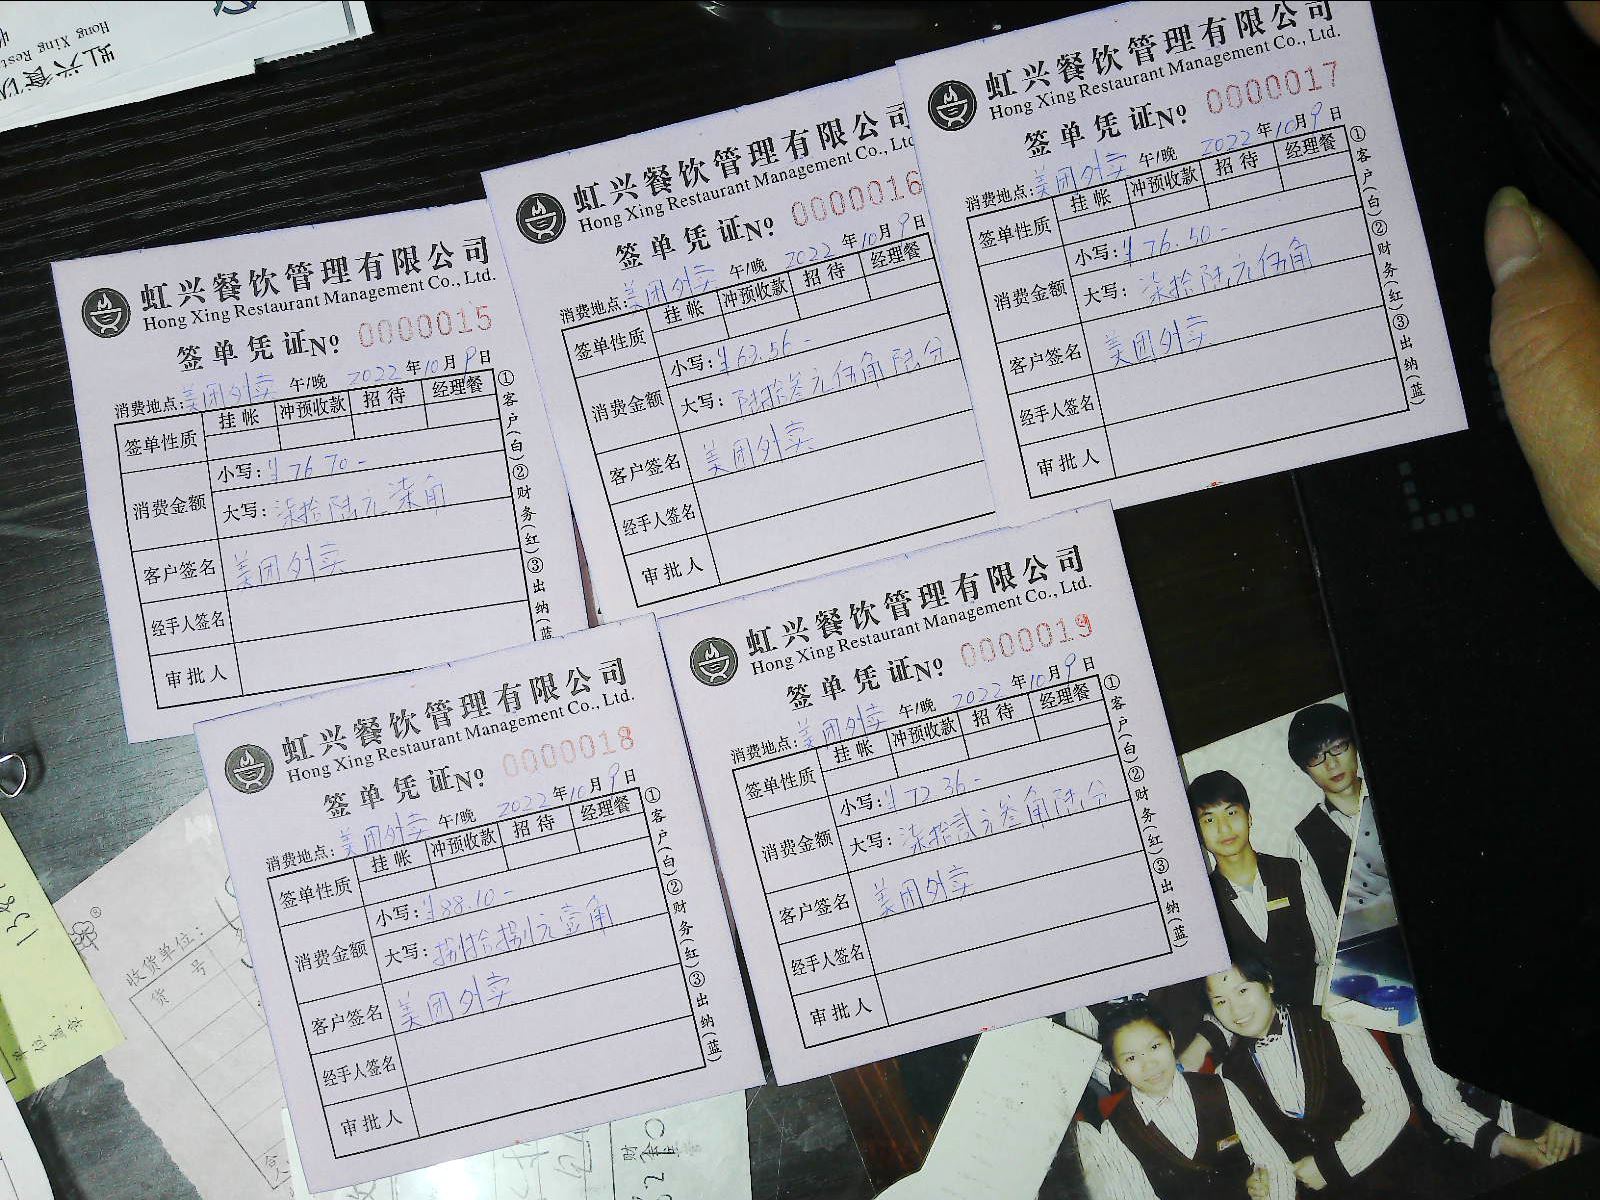 虹兴餐饮管理有限公司
Hong Xing Restaurant Management Co., Ltd.
签单凭证No 0000015
消费地点:美团外卖 午/晚 2022年10月9日
签单性质 挂帐 冲预收款 招待 经理餐
消费金额 小写:¥76.70-
大写:柒拾陆元柒角
客户签名 美团外卖
经手人签名
审批人
①客户(白)②财务(红)③出纳(蓝
虹兴餐饮管理有限公司
Hong Xing Restaurant Management Co., Ltd
签单凭证No 0000016
消费地点:美团外卖 午/晚 2022年10月9日
签单性质 挂帐 冲预收款 招待 经理餐
消费金额 小写:¥63.56-
大写:陆拾叁元伍角陆分
客户签名 美团外卖
经手人签名
审批人
虹兴餐饮管理有限公司
Hong Xing Restaurant Management Co., Ltd.
签单凭证No 0000017
消费地点:美团外卖 午/晚 2022年10月9日
签单性质 挂帐 冲预收款 招待 经理餐
消费金额 小写:¥76.50-
大写:柒拾陆元伍角
客户签名 美团外卖
经手人签名
审批人
①客户(白)②财务(红)③出纳(蓝)
虹兴餐饮管理有限公司
Hong Xing Restaurant Management Co., Ltd.
签单凭证No 0000018
消费地点:美团外卖 午/晚 2022年10月9日
签单性质 挂帐 冲预收款 招待 经理餐
消费金额 小写:¥88.10-
大写:捌拾捌元壹角
客户签名 美团外卖
经手人签名
审批人
①客户(白)②财务(红)③出纳(蓝)
虹兴餐饮管理有限公司
Hong Xing Restaurant Management Co., Ltd.
签单凭证No 0000019
消费地点:美团外卖 午/晚 2022年10月9日
签单性质 挂帐 冲预收款 招待 经理餐
消费金额 小写:¥72.36-
大写:柒拾贰元叁角陆分
客户签名 美团外卖
经手人签名
审批人
①客户(白)②财务(红)③出纳(蓝)
虹兴食
Hong Xing Rest
收货单位:
货号